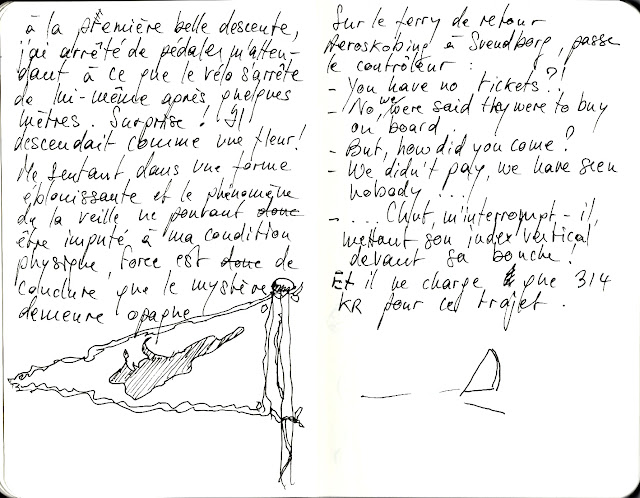 à la première belle descente,
j'ai arrêté de pédaler m'atten-
dant à ce que le vélo s'arrête
de lui-même après quelques
mètres. Surprise ! Il
descendait comme une fleur!
Me sentant dans une forme
éblouissante et le phénomène
de la veille ne pouvant donc
être imputé à ma condition
physique, force est donc de
conclure que le mystère
demeure opaque
Sur le ferry de retour
Aeroskobing à Svendborg, passe
le contrôleur :
- You have no tickets ?!
- No, we were said they were to buy
on board.
- But, how did you come ?
- We didn't pay, we have seen
nobody ....
- .... Chut, m'interrompt-il,
mettant son index vertical
devant sa bouche !
Et il ne charge que 314
KR pour ce trajet.